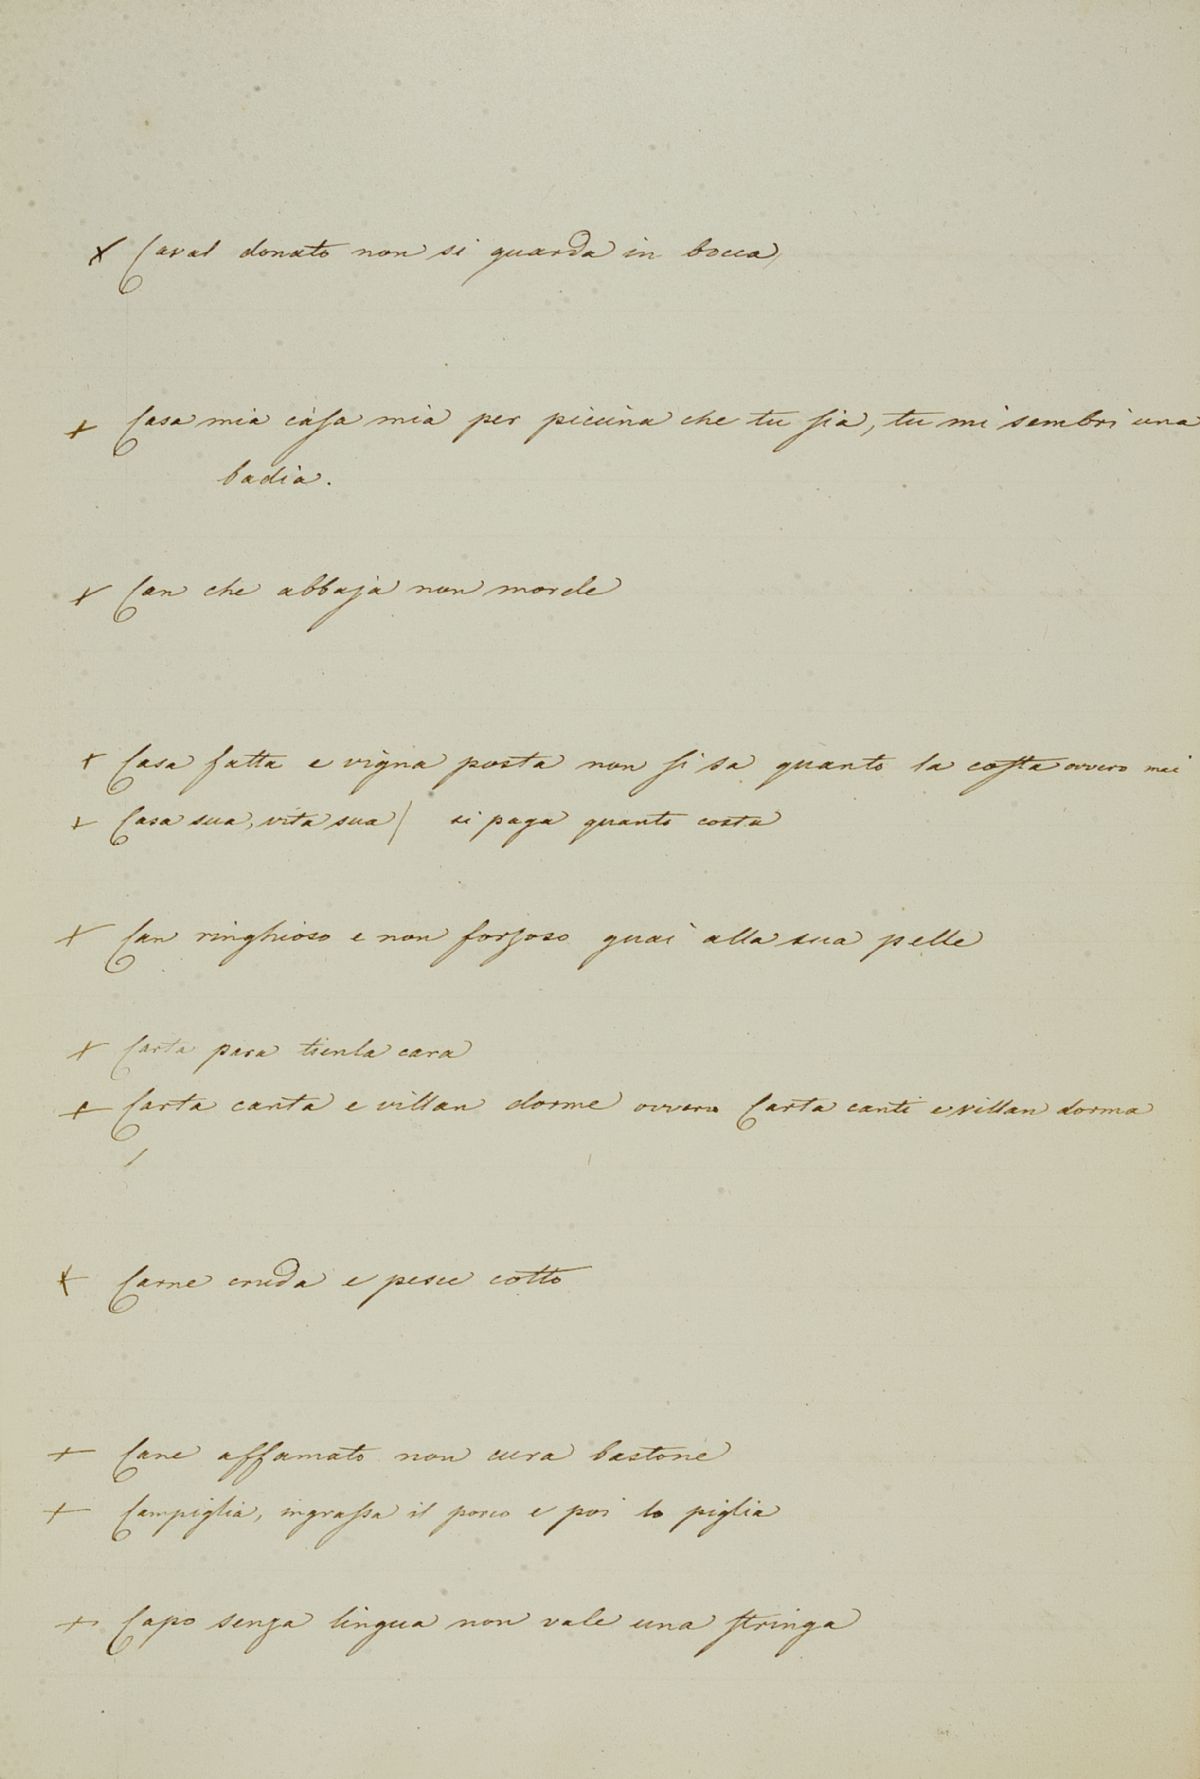 x Caval donato non si guarda in bocca
x Casa mia casa mia per piccina che tu sia, tu mi sembri una
badia.
x Can che abbaja non morde
x Casa fatta e vigna posta non si sa quanto la costa ovvero mai
x Casa sua, vita sua / si paga quanto costa
x Can ringhioso e non forzoso guai alla sua pelle
x Carta para tienla cara
x Carta canta e villan dorme ovvero Carta canti e villan dorma
x Carne cruda e pesce cotto
x Cane affamato non cura bastone
x Campiglia, ingrassa il porco e poi lo piglia
x Capo senza lingua non vale una stringa